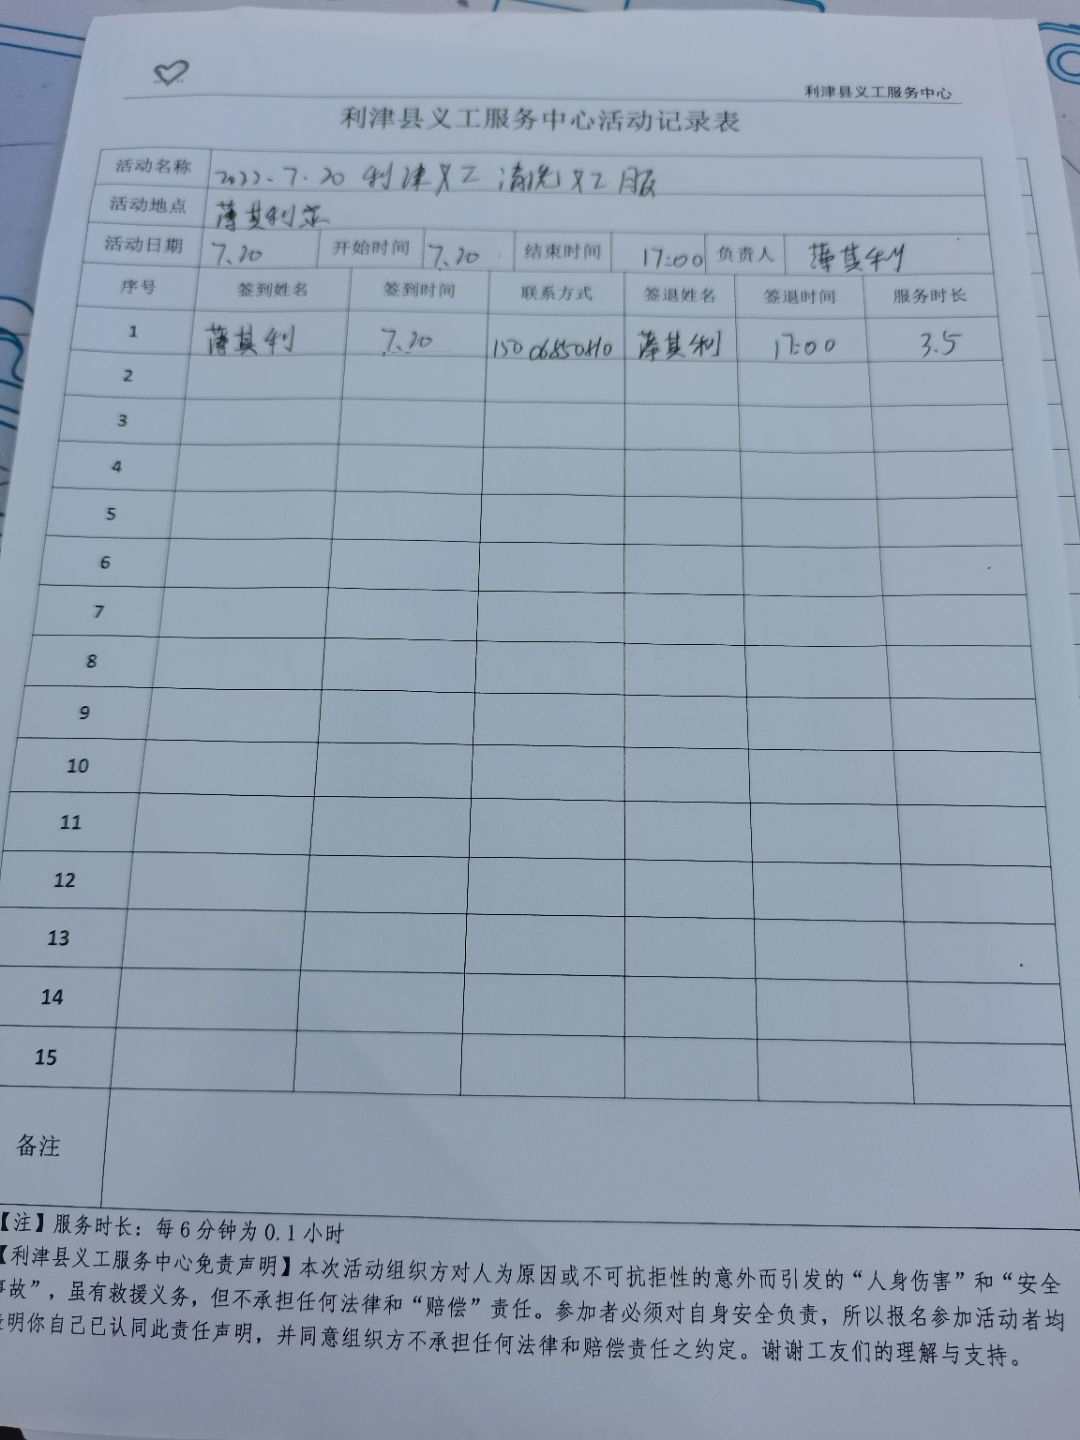 利津县义工服务中心
利津县义工服务中心活动记录表
活动名称 2022.7.20 利津义工 清洗义工服
活动地点 薄其利家
活动日期 7.20 开始时间 7.20 结束时间 17:00 负责人 薄其利
序号 签到姓名 签到时间 联系方式 签退姓名 签退时间 服务时长
1 薄其利 7.20 薄其利 17:00 3.5
2
3
4
5
6
7
8
9
10
11
12
13
14
15
备注
【注】服务时长：每6分钟为0.1小时
【利津县义工服务中心免责声明】本次活动组织方对人为原因或不可抗拒性的意外而引发的“人身伤害”和“安全
事故”，虽有救援义务，但不承担任何法律和“赔偿”责任。参加者必须对自身安全负责，所以报名参加活动者均
明你自己已认同此责任声明，并同意组织方不承担任何法律和赔偿责任之约定。谢谢工友们的理解与支持。